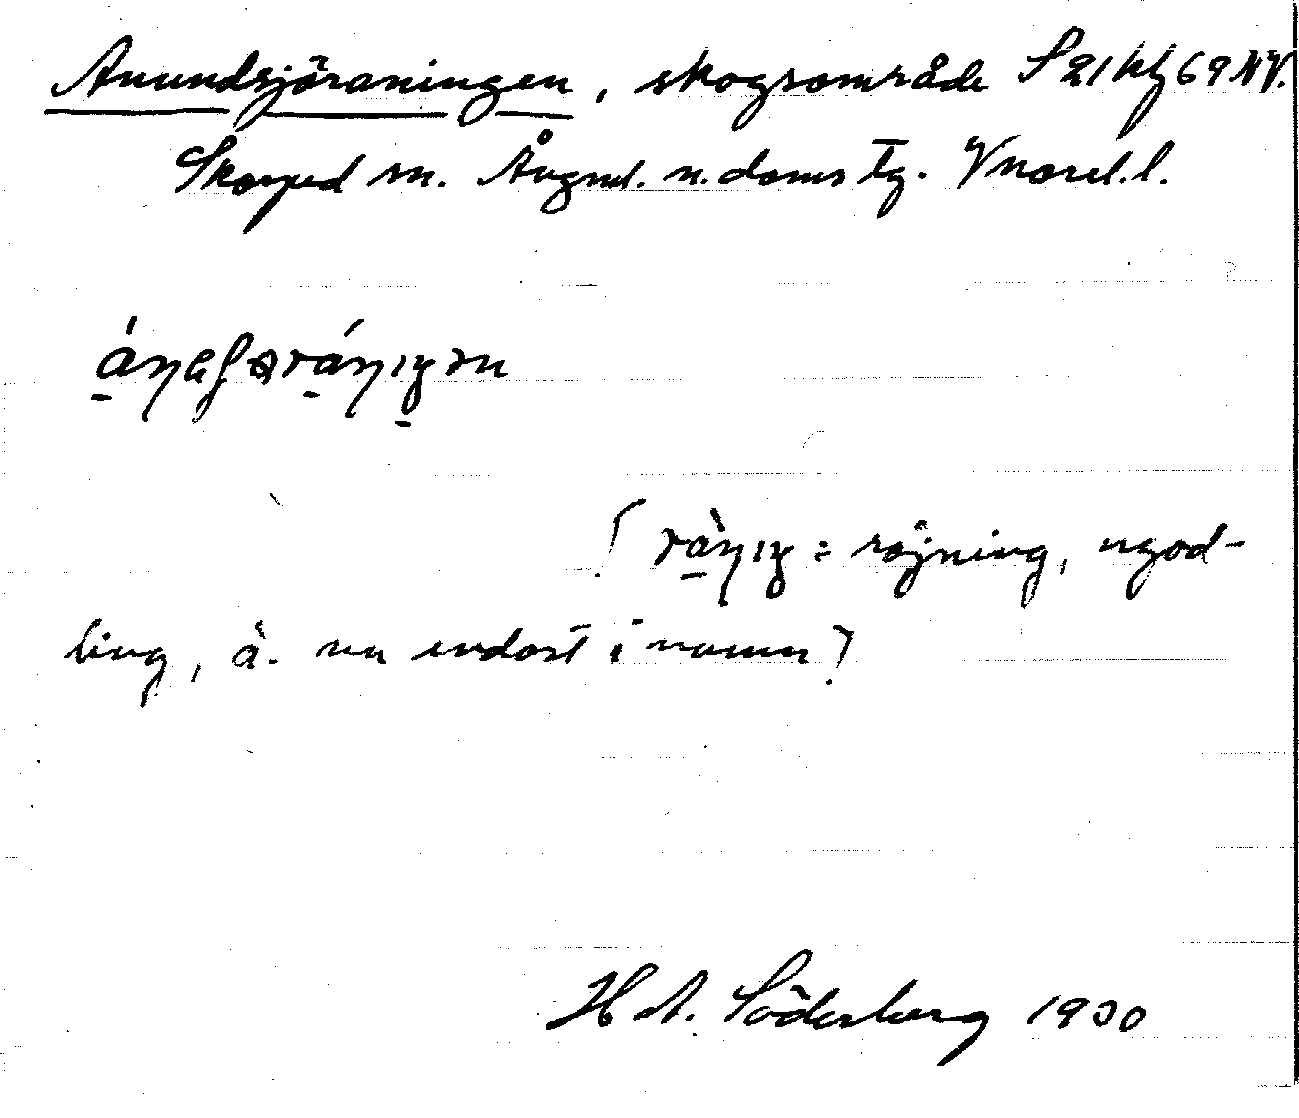 Anundsjöraningen, skogsområde S 21 kbl 69 NV.
Skorped sn. Ångml. n. doms tg. Vnorrl. l.
[ràŋıŋ = röjning, uppod-
ling, ä. nu endast i namn]
H A. Söderberg 1930